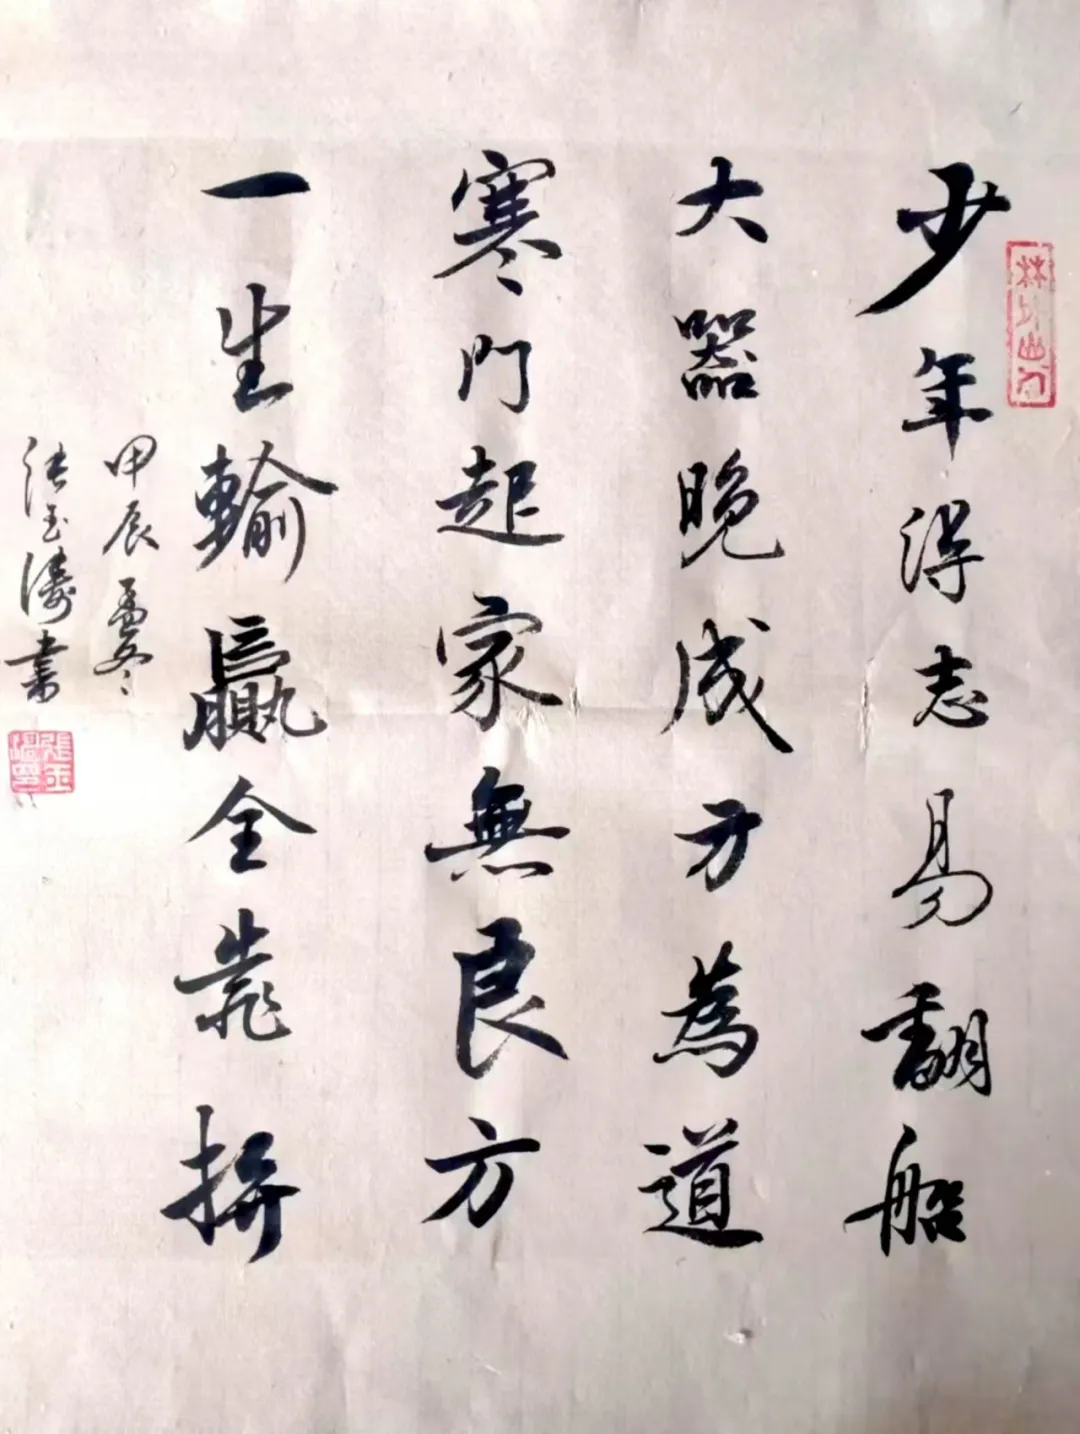 少年得志易翻船
大器晚成方為道
寒門起家無良方
一生輸贏全靠拚
甲辰孟冬
張玉濤書